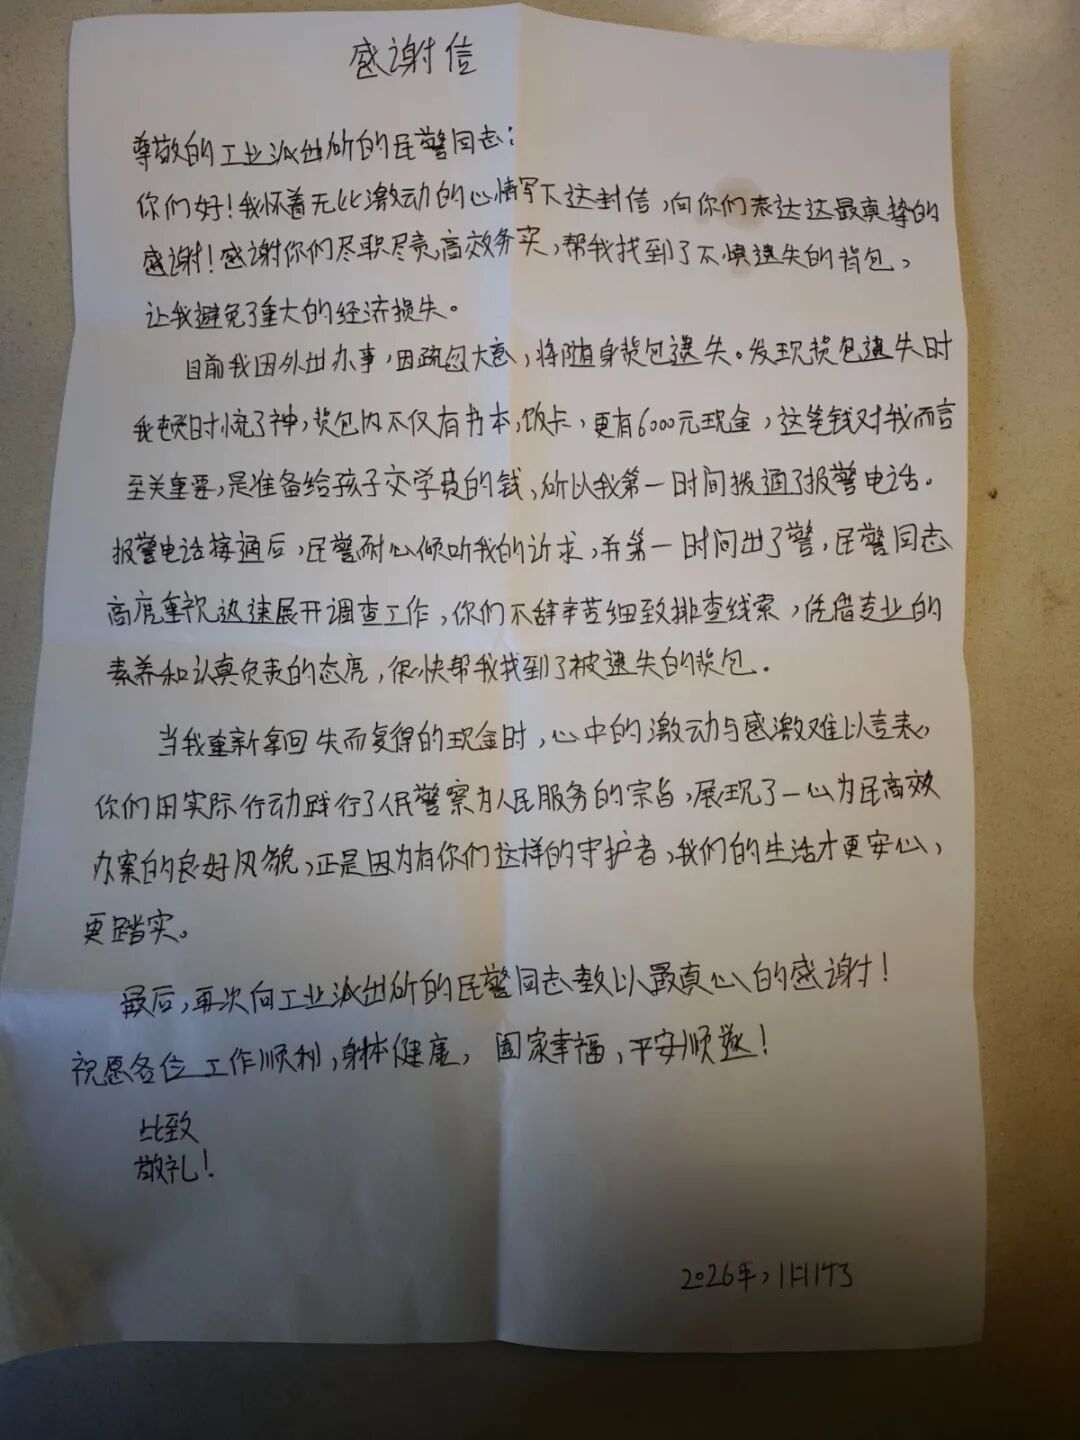 感谢信
尊敬的工业派出所的民警同志：
你们好！我怀着无比激动的心情写下这封信，向你们表达这最真挚的
感谢！感谢你们尽职尽责高效务实，帮我找到了不慎遗失的背包，
让我避免了重大的经济损失。
目前我因外出办事，因疏忽大意，将随身背包遗失。发现背包遗失时
我顿时慌了神，背包内不仅有书本，饭卡，更有6000元现金，这笔钱对我而言
至关重要，是准备给孩子交学费的钱，所以我第一时间拨通了报警电话。
报警电话接通后，民警耐心倾听我的诉求，并第一时间出了警，民警同志
高度重视迅速展开调查工作，你们不辞辛苦细致排查线索，凭借专业的
素养和认真负责的态度，很快帮我找到了被遗失的背包。
当我重新拿回失而复得的现金时，心中的激动与感激难以言表。
你们用实际行动践行了人民警察为人民服务的宗旨，展现了一心为民高效
办案的良好风貌，正是因为有你们这样的守护者，我们的生活才更安心，
更踏实。
最后，再次向工业派出所的民警同志致以最真心的感谢！
祝愿各位工作顺利，身体健康，阖家幸福，平安顺遂！
此致
敬礼！
2026年，1月